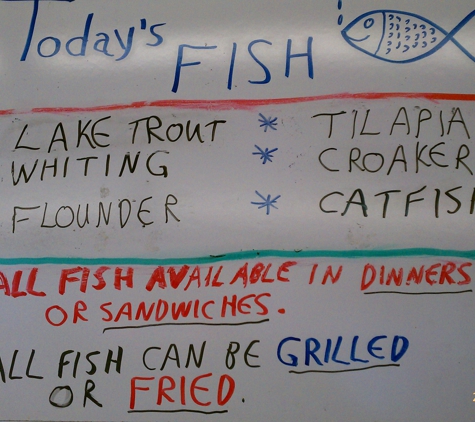 Today's FISH
LAKE TROUT * TILAPIA
WHITING * CROAKER
FLOUNDER * CATFISH
ALL FISH AVAILABLE IN DINNERS
OR SANDWICHES.
ALL FISH CAN BE GRILLED
OR FRIED.